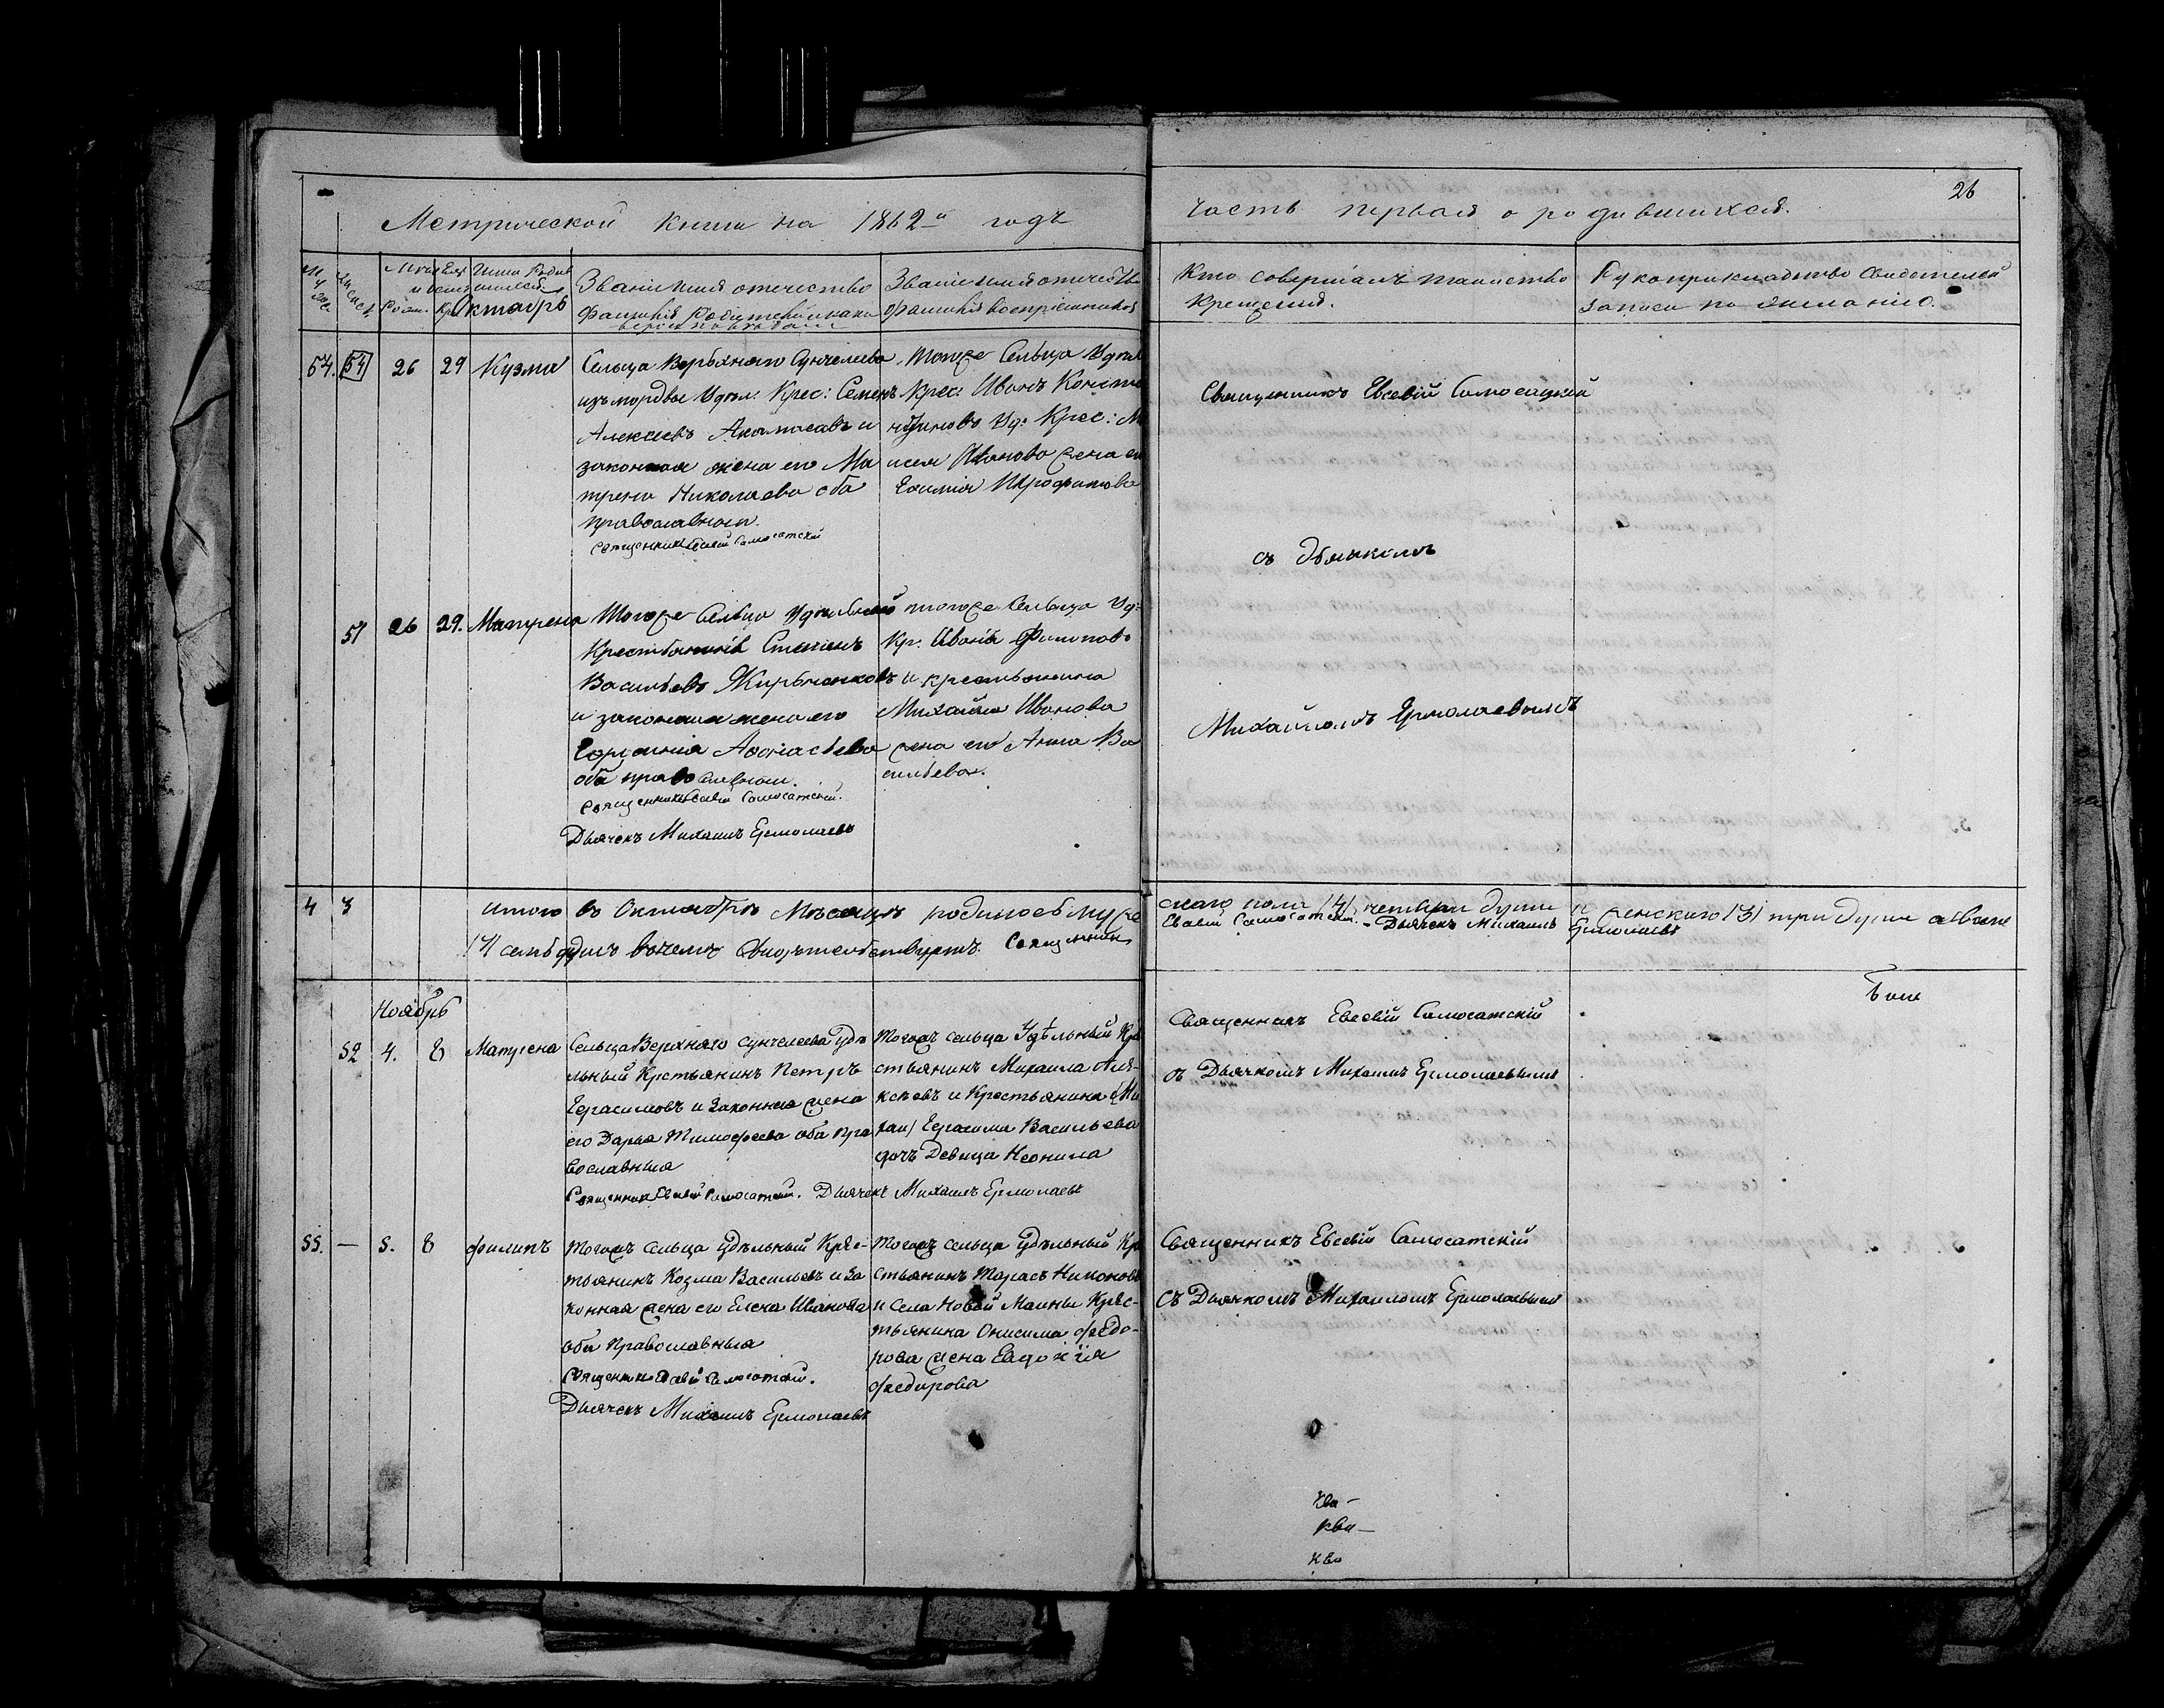 Метрической книги на 1862й годъ
часть первая о родившихся.
26
Званіе имя отечество
фамилія Родителей и какаго
вероисповеданія
Званіе имя отечество
фамилія воспріемниковъ
Кто совершалъ таинство
Крещенія.
Рукоприкладство свидетелей
записи по желанію.
Октябрь
54. 51 26 29 Кузма
Сельца Верхняго Сунчелеева
изъ мордвы Удел: Крес: Семенъ
Алексеевъ и
законная жена его Ма
трена Николаева оба
православныи.
Священникъ Евсевій Самосатскій
Тогоже Сельца
Крес: Иванъ Конста
нтиновъ Уд: Крес: М
Иванова жена ег
Евфимія
Священникъ Евсевій Самосацкой
съ дьячкомъ
Михайломъ Ермолаевымъ
51 26 29. Матрена
Тогоже Сельца Удельный
Крестьянинъ Степанъ
Васильевъ
и законная жена его
Афонасьева
оба православныи.
Священникъ Евсевій Самосатскій.
Дьячекъ Михаилъ Ермолаевъ
тогоже Сельца Уд:
Кр. Иванъ Филиповъ
и крестьянина
Михайла Иванова
жена его Анна Ва
сильева.
4 3 итого въ Октябре Месяце родилось муже
скаго пола /4/ четыри души и женскаго /3/ три души а обоего
/7/ семь душъ въ чемъ свидетельствуетъ. Священник
Евсевій Самосатскій. Дьячекъ Михаилъ Ермолаевъ
Ноябрь
52 4. 8 Матрена
Сельца Верхняго Сунчелеева Удѣ
льный Крестьянинъ Петръ
Герасимовъ и Законная жена
его Дарья Тимофеева оба пра
вославныя
Священникъ Евсевій Самосатскій. Дьячекъ Михаилъ Ермолаевъ
Тогожъ сельца Удѣльный Кре
стьянинъ Михаила Але-
ксѣевъ и Крестьянина
Герасима Васильева
дочь Девица Неонила
Священникъ Евсевій Самосатскій
съ Дьячкомъ Михаилъ Ермолаевымъ
55. — 5. 8 Филипъ
Тогожъ Сельца Удѣльный Крес-
тьянинъ Козма Васильевъ и за
конная жена его Елена Иванова
оба Православныя
Священникъ Евсевій Самосатскій.
Дьячекъ Михаилъ Ермолаевъ
Тогожъ сельца Удѣльный Кре
стьянинъ Тарасъ Никоновъ
и села Новой Маины Крес-
тьянина Онисима Федо-
рова жена Евдокія
Федорова
Священникъ Евсевій Самосатскій
Съ Дьячкомъ Михаиломъ Ермолаевымъ